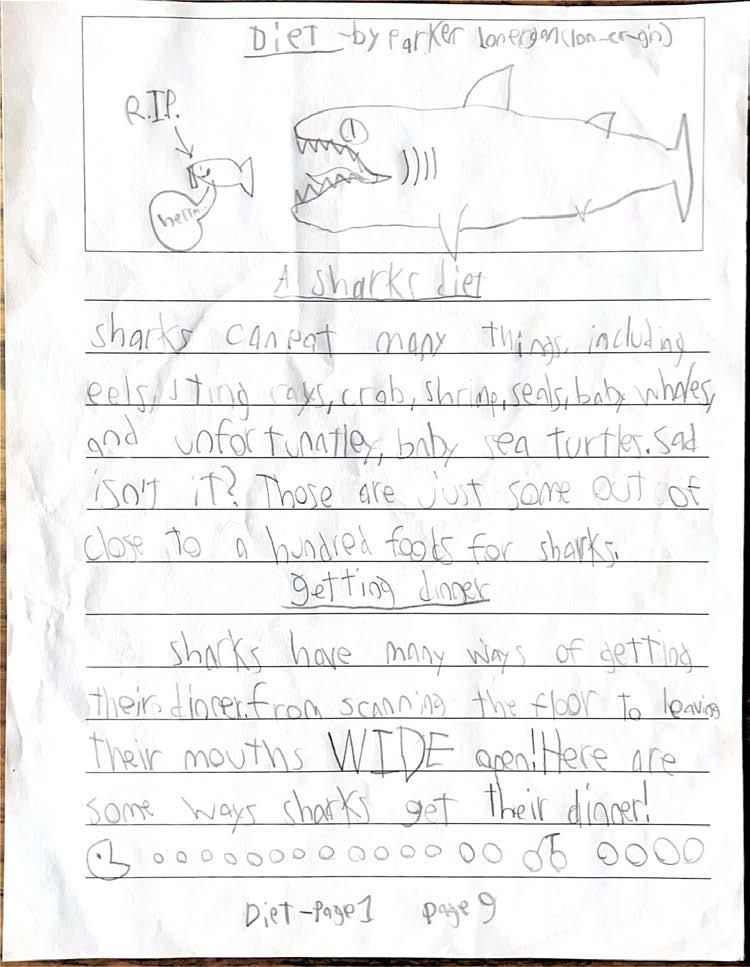 Diet - by Parker Lonergan (lon-er-gin)
R.I.P.
A sharks diet
sharks can eat many things, including
eels, sting rays, crab, shrimp, seals, baby whales,
and unfortunatley, baby sea turtles. Sad
isn't it? Those are just some out of
close to a hundred foods for sharks.
getting dinner
sharks have many ways of getting
their dinner. from scanning the floor to leaving
their mouths WIDE open! Here are
some ways sharks get their dinner!
Diet - Page 1 Page 9